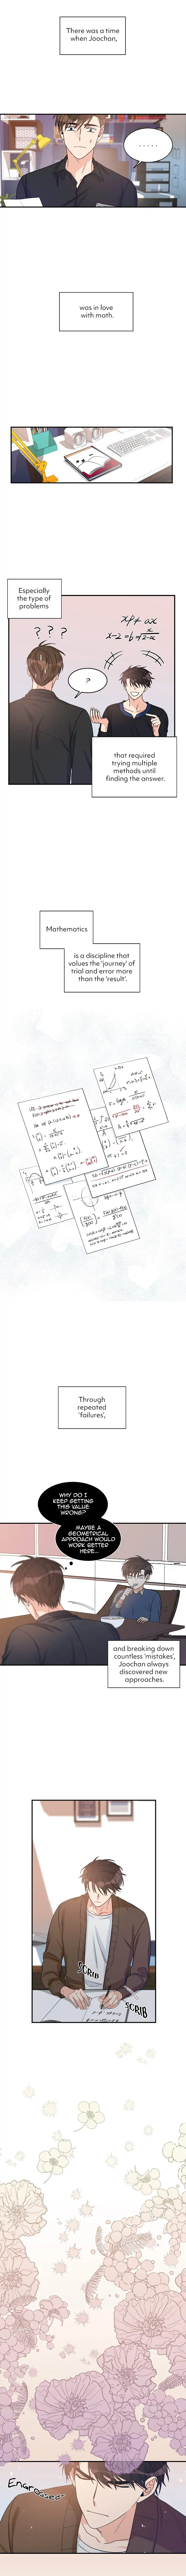 There was a time
when Joochan,
.....
was in love
with math.
Especially
the type of
problems
? ? ?
?
that required
trying multiple
methods until
finding the answer.
Mathematics
is a discipline that
values the 'journey' of
trial and error more
than the 'result'.
Through
repeated
'failures',
WHY DO I
KEEP GETTING
THIS VALUE
WRONG?
MAYBE A
GEOMETRICAL
APPROACH WOULD
WORK BETTER
HERE...
and breaking down
countless 'mistakes',
Joochan always
discovered new
approaches.
SCRIB
SCRIB
Engrossed~